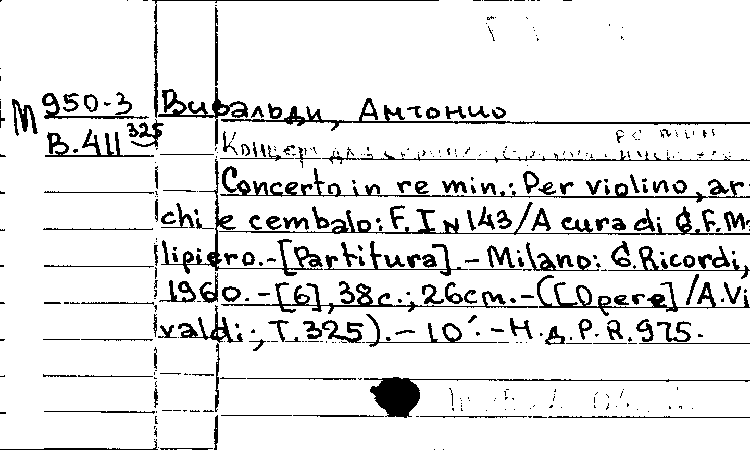 М 950-3 Вивальди, Антонио
В.411 325
ре мин
Концерт для скрипки,
Concerto in re min.: Per violino, ar
chi e cembalo: F. I N 143/A cura di G.F. Ma
lipiero.-[Partitura].- Milano: G. Ricordi,
1960.-[6], 38с.; 26cm.-([Opere]/A.Vi
valdi; T.325).- 10´.-Н.д.P.R.975.